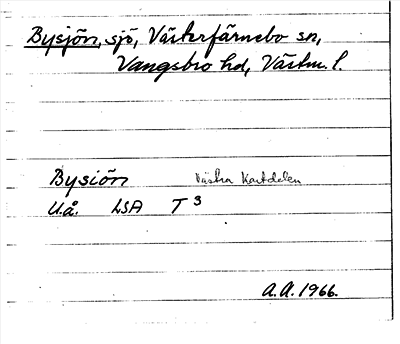 Bysjön, sjö, Västerfärnebo sn,
Vangsbro hd, Västm. l.
Bysiön Västra Kartdelen
U.å. LSA T 3
A.A. 1966.